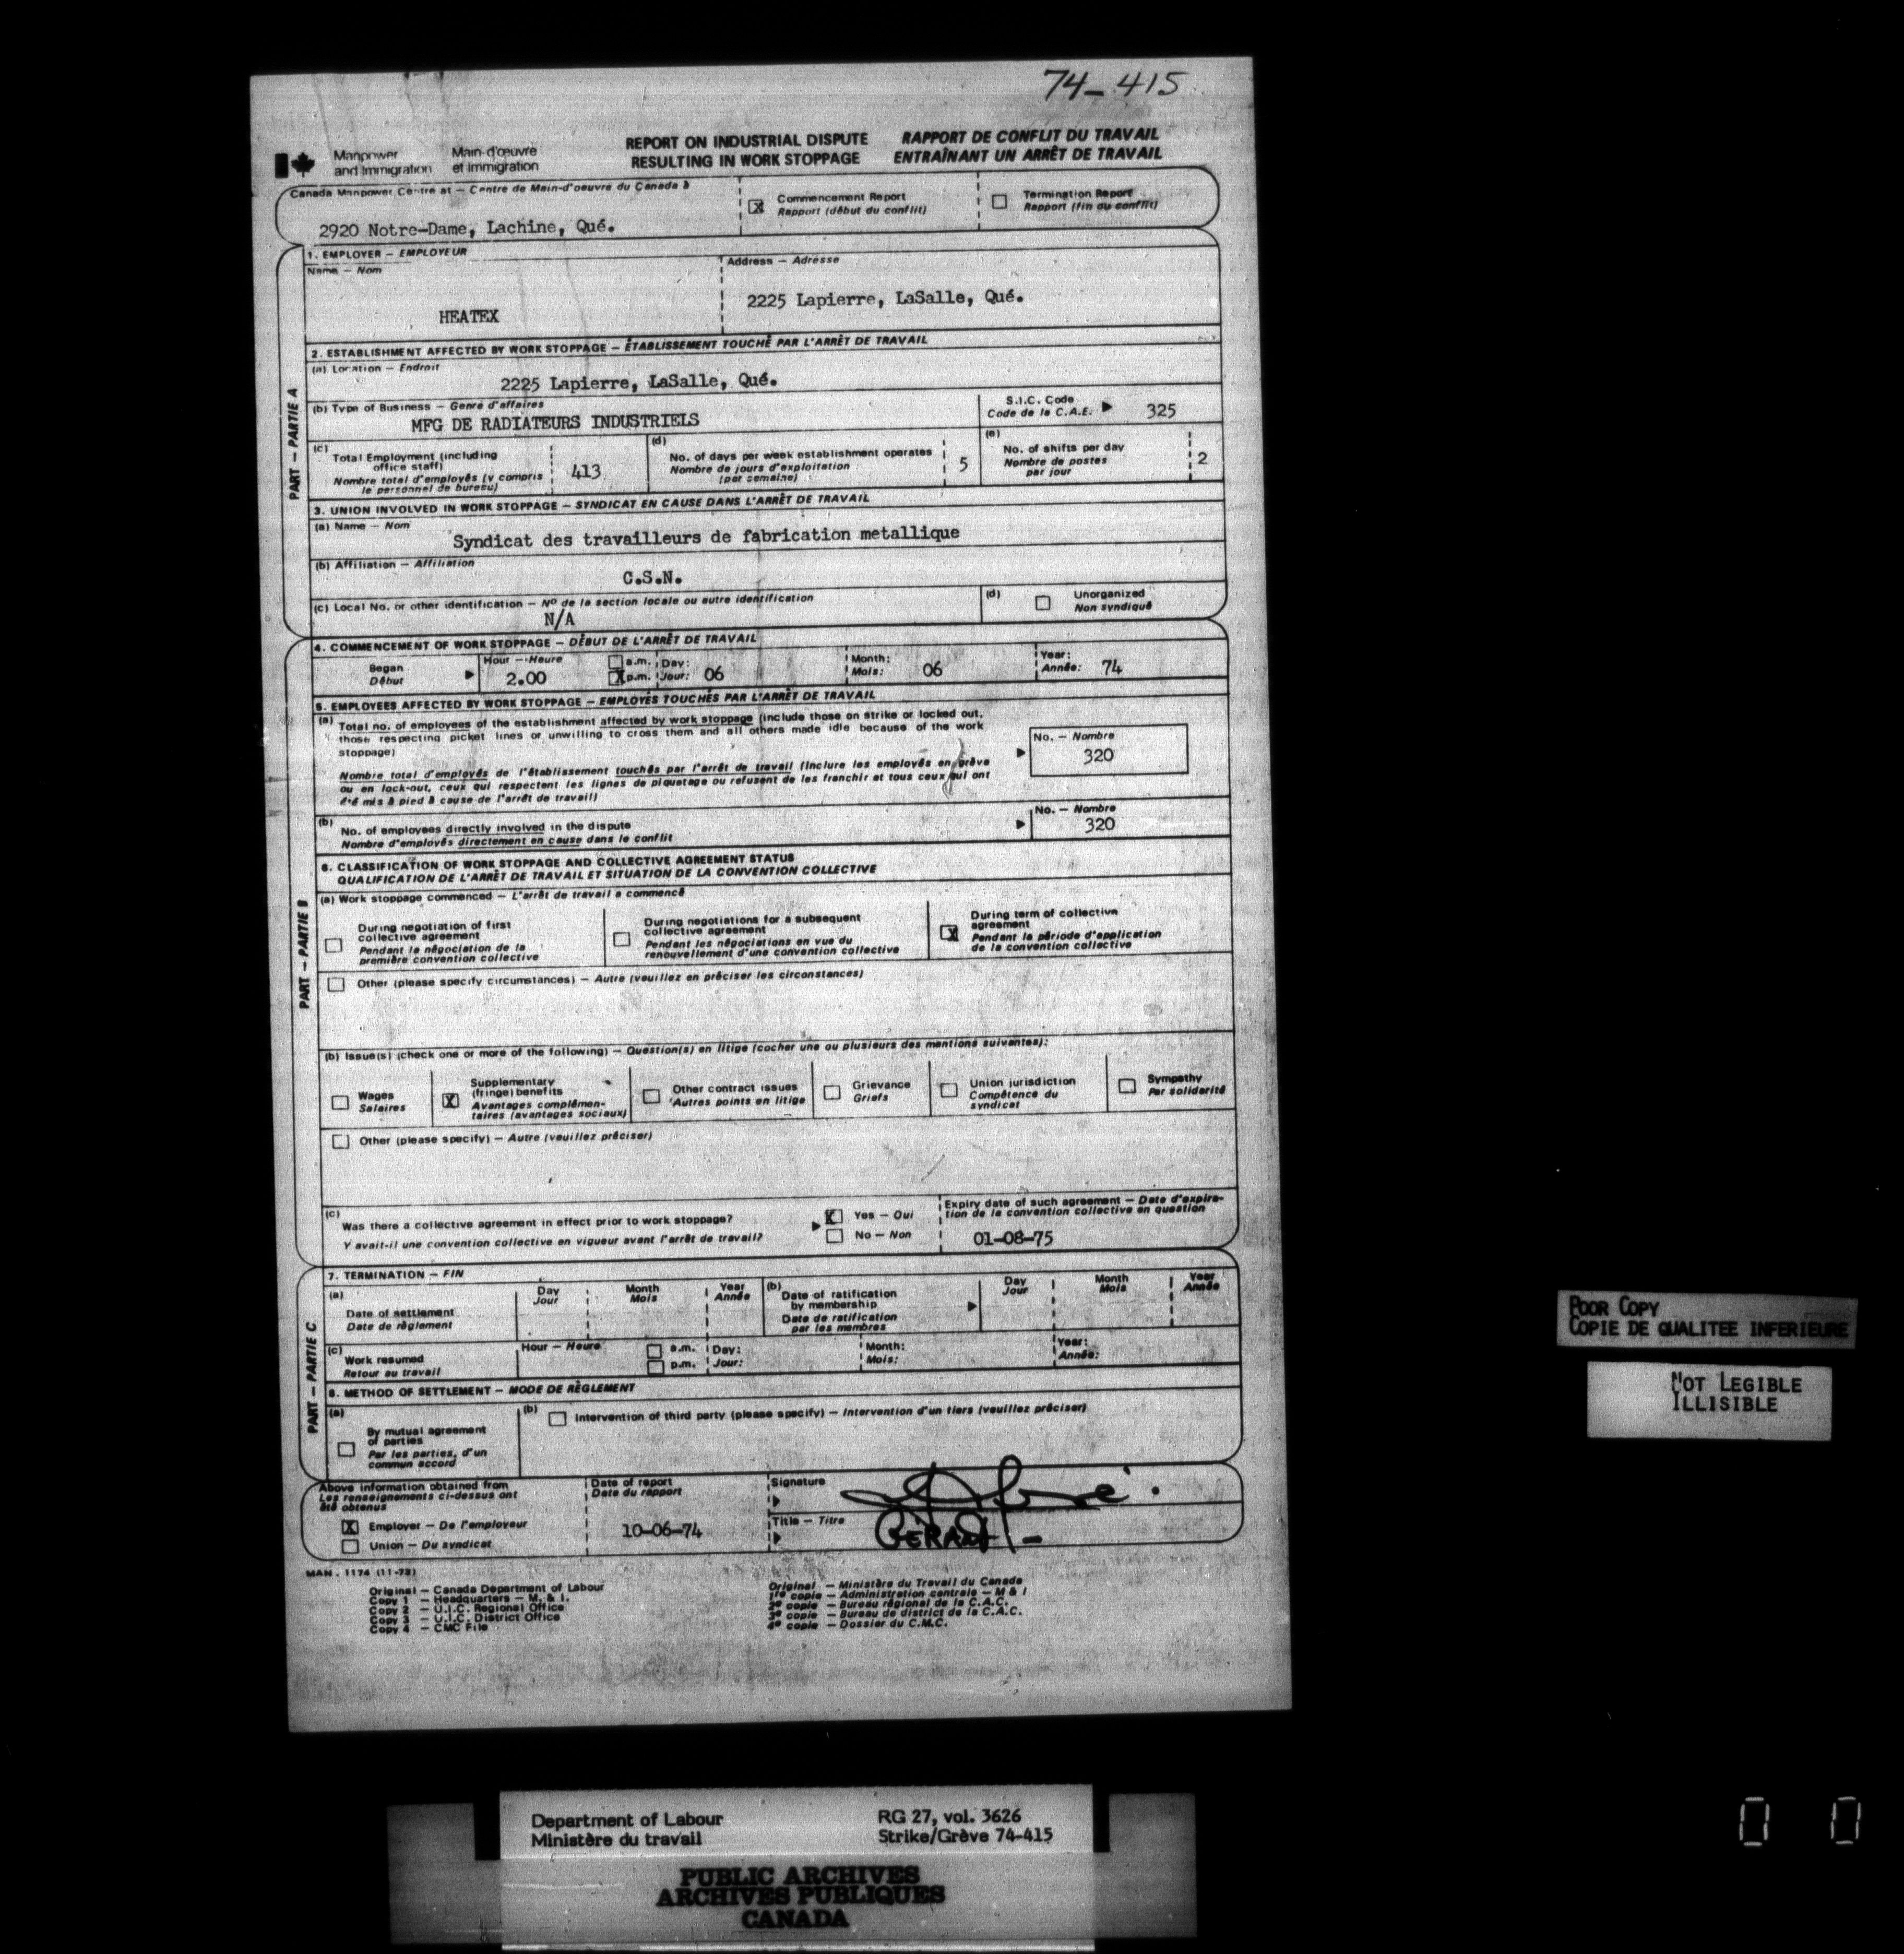 74-415
Manpower and Immigration
Main-d'œuvre et Immigration
REPORT ON INDUSTRIAL DISPUTE RESULTING IN WORK STOPPAGE
RAPPORT DE CONFLIT DU TRAVAIL ENTRAÎNANT UN ARRÊT DE TRAVAIL
Canada Manpower Centre at — Centre de Main-d'oeuvre du Canada à
2920 Notre-Dame, Lachine, Qué.
X Commencement Report
Rapport (début du conflit)
Termination Report
Rapport (fin du conflit)
PART — PARTIE A
1. EMPLOYER — EMPLOYEUR
Name — Nom
HEATEX
Address — Adresse
2225 Lapierre, LaSalle, Qué.
2. ESTABLISHMENT AFFECTED BY WORK STOPPAGE — ÉTABLISSEMENT TOUCHÉ PAR L'ARRÊT DE TRAVAIL
(a) Location — Endroit
2225 Lapierre, LaSalle, Qué.
(b) Type of Business — Genre d'affaires
MFG DE RADIATEURS INDUSTRIELS
S.I.C. Code
Code de la C.A.E. 325
(c) Total Employment (including
office staff)
Nombre total d'employés (y compris
le personnel de bureau)
413
(d) No. of days per week establishment operates
Nombre de jours d'exploitation
(par semaine)
5
(e) No. of shifts per day
Nombre de postes
par jour
2
3. UNION INVOLVED IN WORK STOPPAGE — SYNDICAT EN CAUSE DANS L'ARRÊT DE TRAVAIL
(a) Name — Nom
Syndicat des travailleurs de fabrication metallique
(b) Affiliation — Affiliation
C.S.N.
(c) Local No. or other identification — Nº de la section locale ou autre identification
N/A
(d) Unorganized
Non syndiqué
PART — PARTIE B
4. COMMENCEMENT OF WORK STOPPAGE — DÉBUT DE L'ARRÊT DE TRAVAIL
Began
Début
Hour — Heure
2.00
a.m.
X p.m.
Day:
Jour: 06
Month:
Mois: 06
Year:
Année: 74
5. EMPLOYEES AFFECTED BY WORK STOPPAGE — EMPLOYÉS TOUCHÉS PAR L'ARRÊT DE TRAVAIL
(a) Total no. of employees of the establishment affected by work stoppage (include those on strike or locked out,
those respecting picket lines or unwilling to cross them and all others made idle because of the work
stoppage)
Nombre total d'employés de l'établissement touchés par l'arrêt de travail (Inclure les employés en grève
ou en lock-out, ceux qui respectent les lignes de piquetage ou refusent de les franchir et tous ceux qui ont
été mis à pied à cause de l'arrêt de travail)
No. — Nombre
320
(b) No. of employees directly involved in the dispute
Nombre d'employés directement en cause dans le conflit
No. — Nombre
320
6. CLASSIFICATION OF WORK STOPPAGE AND COLLECTIVE AGREEMENT STATUS
QUALIFICATION DE L'ARRÊT DE TRAVAIL ET SITUATION DE LA CONVENTION COLLECTIVE
(a) Work stoppage commenced — L'arrêt de travail a commencé
During negotiation of first
collective agreement
Pendant la négociation de la
première convention collective
During negotiations for a subsequent
collective agreement
Pendant les négociations en vue du
renouvellement d'une convention collective
X During term of collective
agreement
Pendant la période d'application
de la convention collective
Other (please specify circumstances) — Autre (veuillez en préciser les circonstances)
(b) Issue(s) (check one or more of the following) — Question(s) en litige (cocher une ou plusieurs des mentions suivantes):
Wages
Salaires
X Supplementary
(fringe) benefits
Avantages complémen-
taires (avantages sociaux)
Other contract issues
Autres points en litige
Grievance
Griefs
Union jurisdiction
Compétence du
syndicat
Sympathy
Par solidarité
Other (please specify) — Autre (veuillez préciser)
(c) Was there a collective agreement in effect prior to work stoppage?
Y avait-il une convention collective en vigueur avant l'arrêt de travail?
X Yes — Oui
No — Non
Expiry date of such agreement — Date d'expira-
tion de la convention collective en question
01-08-75
PART — PARTIE C
7. TERMINATION — FIN
(a) Date of settlement
Date de règlement
Day
Jour
Month
Mois
Year
Année
(b) Date of ratification
by membership
Date de ratification
par les membres
Day
Jour
Month
Mois
Year
Année
(c) Work resumed
Retour au travail
Hour — Heure
a.m.
p.m.
Day:
Jour:
Month:
Mois:
Year:
Année:
8. METHOD OF SETTLEMENT — MODE DE RÈGLEMENT
(a) By mutual agreement
of parties
Par les parties, d'un
commun accord
(b) Intervention of third party (please specify) — Intervention d'un tiers (veuillez préciser)
Above information obtained from
Les renseignements ci-dessus ont
été obtenus
X Employer — De l'employeur
Union — Du syndicat
Date of report
Date du rapport
10-06-74
Signature
Title — Titre
GÉRANT -
MAN. 1174 (11-73)
Original — Canada Department of Labour
Copy 1 — Headquarters — M. & I.
Copy 2 — U.I.C. Regional Office
Copy 3 — U.I.C. District Office
Copy 4 — CMC File
Original — Ministère du Travail du Canada
1re copie — Administration centrale — M & I
2e copie — Bureau régional de la C.A.C.
3e copie — Bureau de district de la C.A.C.
4e copie — Dossier du C.M.C.
POOR COPY
COPIE DE QUALITEE INFERIEURE
NOT LEGIBLE
ILLISIBLE
Department of Labour
Ministère du travail
RG 27, vol. 3626
Strike/Grève 74-415
PUBLIC ARCHIVES
ARCHIVES PUBLIQUES
CANADA
0 0